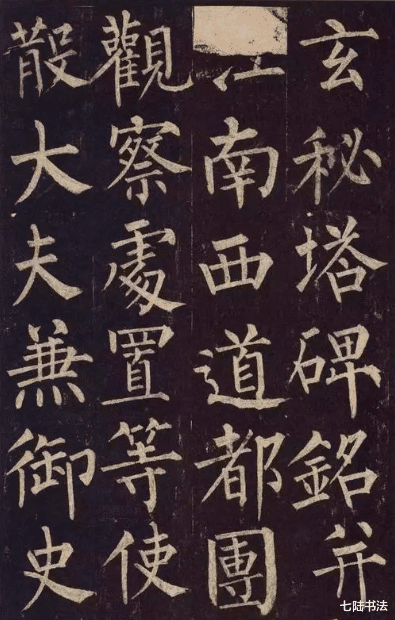 玄秘塔碑銘并
南西道都團
觀察處置等使
散大夫兼御史
七陆书法